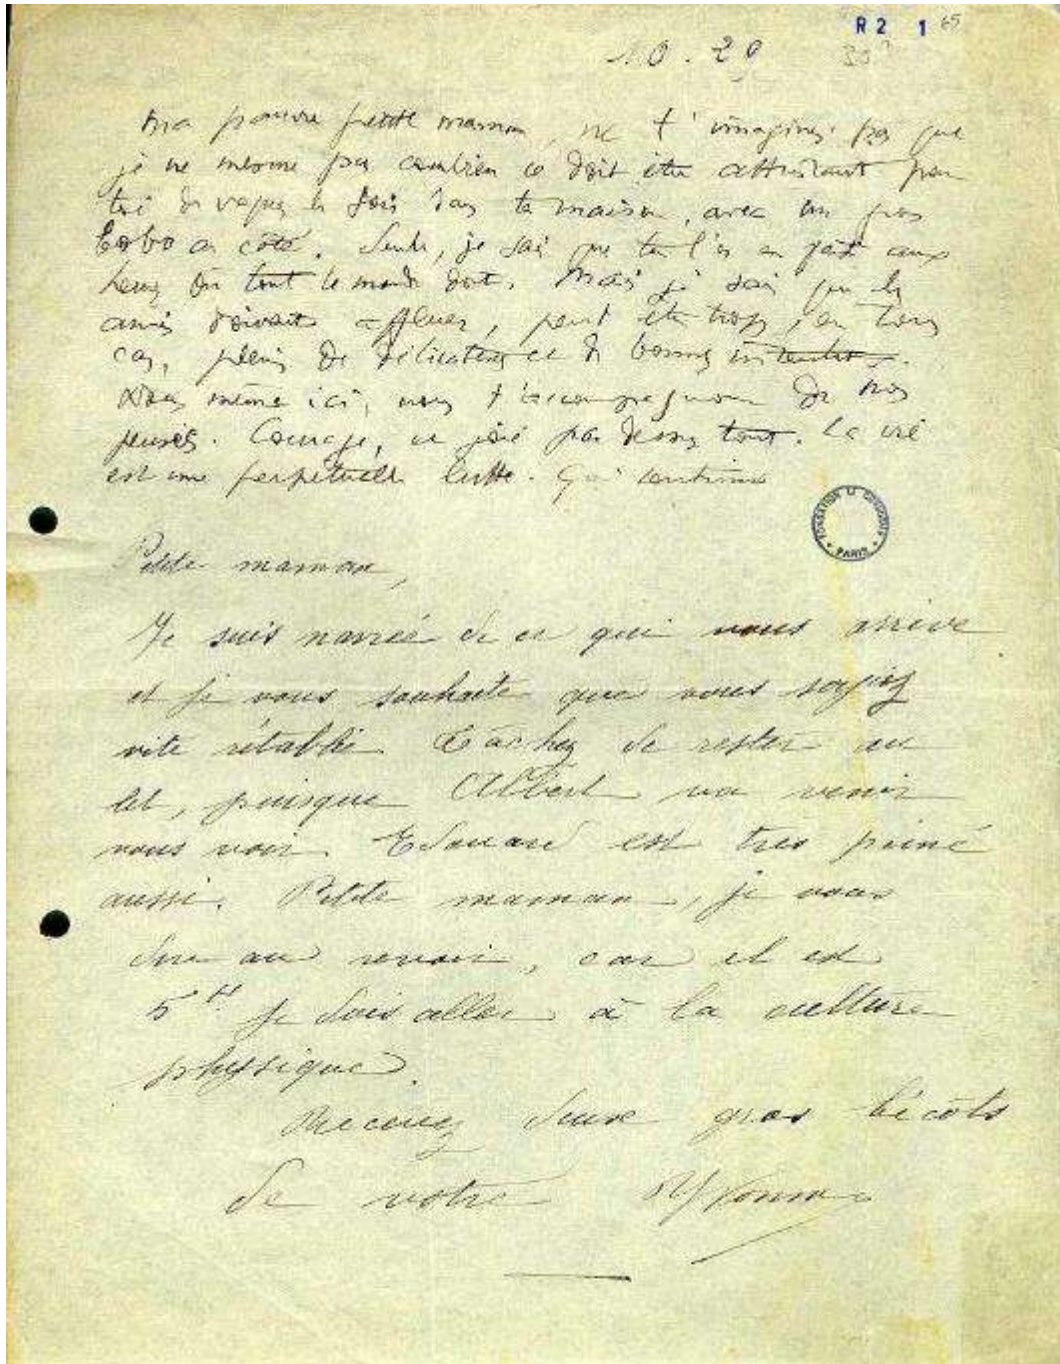 R2 1 65
10.29
Ma pauvre petite maman, ne t'imagines pas que
je ne mesure pas combien ce doit être attristant pour
toi de voguer le soir dans ta maison, avec un gros
bobo à côté. Seule, je sais que tu l'es en fait aux
heures où tout le monde dort. Mais je sais que les
amis doivent affluer, peut être trop, en tous
cas, pleins de délicatesse et de bonnes intentions.
Nous même ici, nous t'accompagnons de nos
pensées. Courage, et joie par dessus tout. La vie
est une perpétuelle lutte. Qui continue
FONDATION LE CORBUSIER PARIS
Petite maman,
Je suis navrée de ce qui vous arrive
et je vous souhaite que vous soyiez
vite rétablie. Tâchez de rester au
lit, puisque Albert va venir
vous voir. Edouard est très peiné
aussi. Petite maman, je vous
dire au revoir, car il est
5 H je dois aller à la culture
physique.
Recevez deux gros bécots
de votre Yvonne